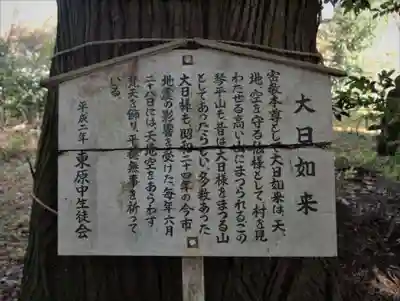 大日如来
密教本尊として大日如来は、天、
地、空を守る仏様として、村を見
わたせる高い山にまつられるこの
琴平山も昔は大日様をまつる山
としてあったらしい、多数あった
大日様も、昭和二十四年の今市
地震の影響を受けた、毎年六月
二十八日には、天地空をあらわす
梵天を飾り、平穏無事を祈って
いる。
平成二年、東原中生徒会